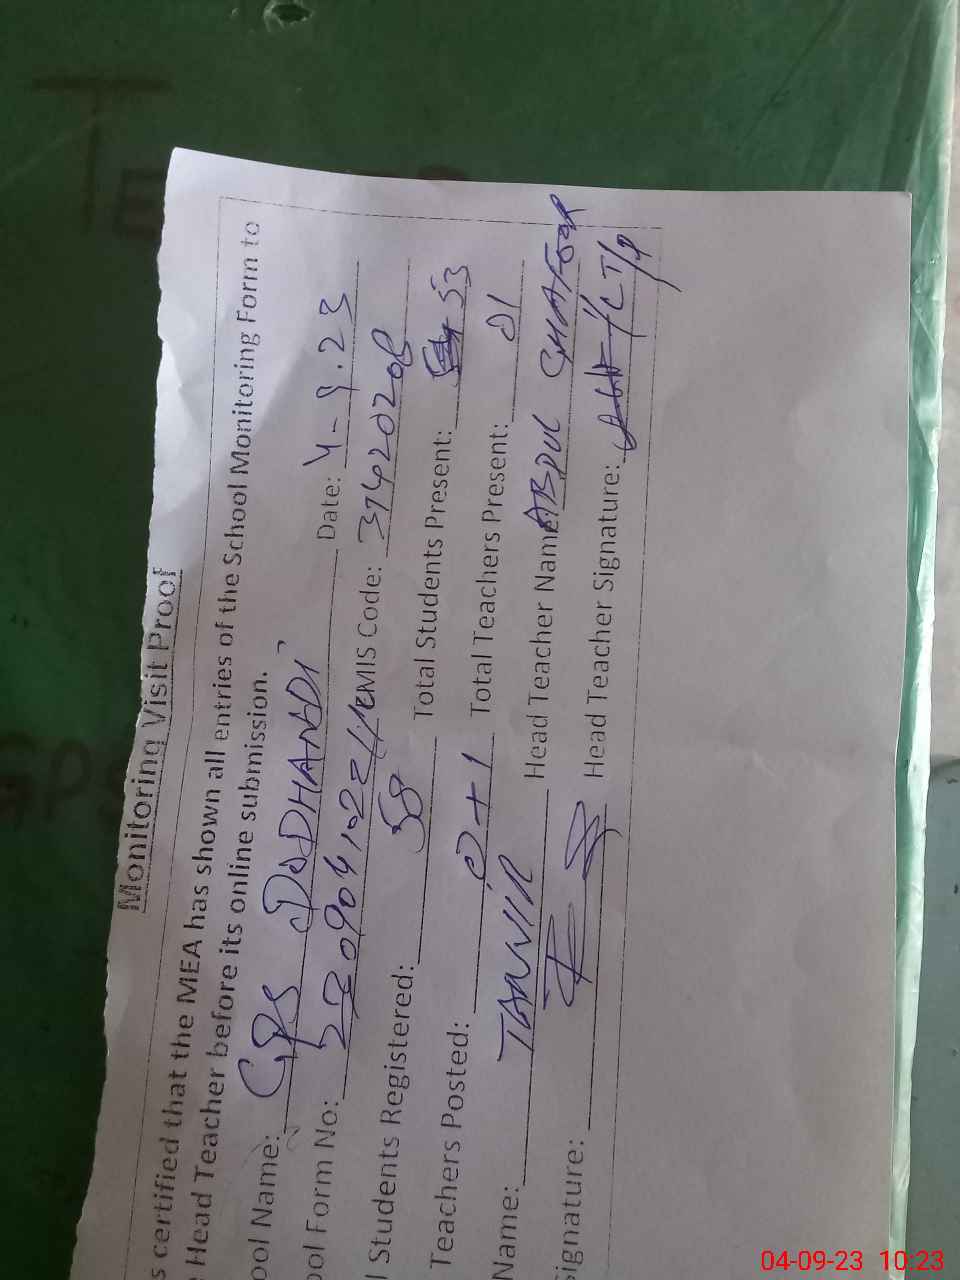 Monitoring Visit Proof
s certified that the MEA has shown all entries of the School Monitoring Form to
Head Teacher before its online submission.
ool Name: GPS DODHANDI Date: 4-9.23
ool Form No: EMIS Code: 37420208
l Students Registered: 58 Total Students Present: 53
Teachers Posted: 0+1 Total Teachers Present: 01
Name: TANVIR Head Teacher Name: ABDUL GHAFOOR
Signature: Head Teacher Signature:
GPS
04-09-23 10:23